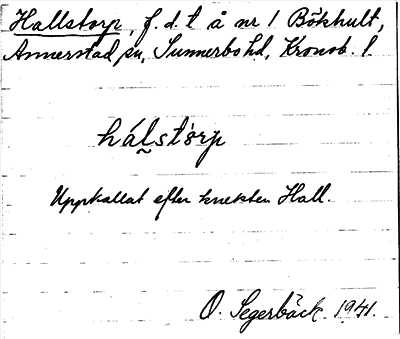 Hallstorp, f.d. t å nr 1 Bökhult,
Annerstad sn, Sunnerbo hd, Kronob. l.
hálstòrp
Uppkallat efter knekten Hall.
O. Segerbäck 1941.